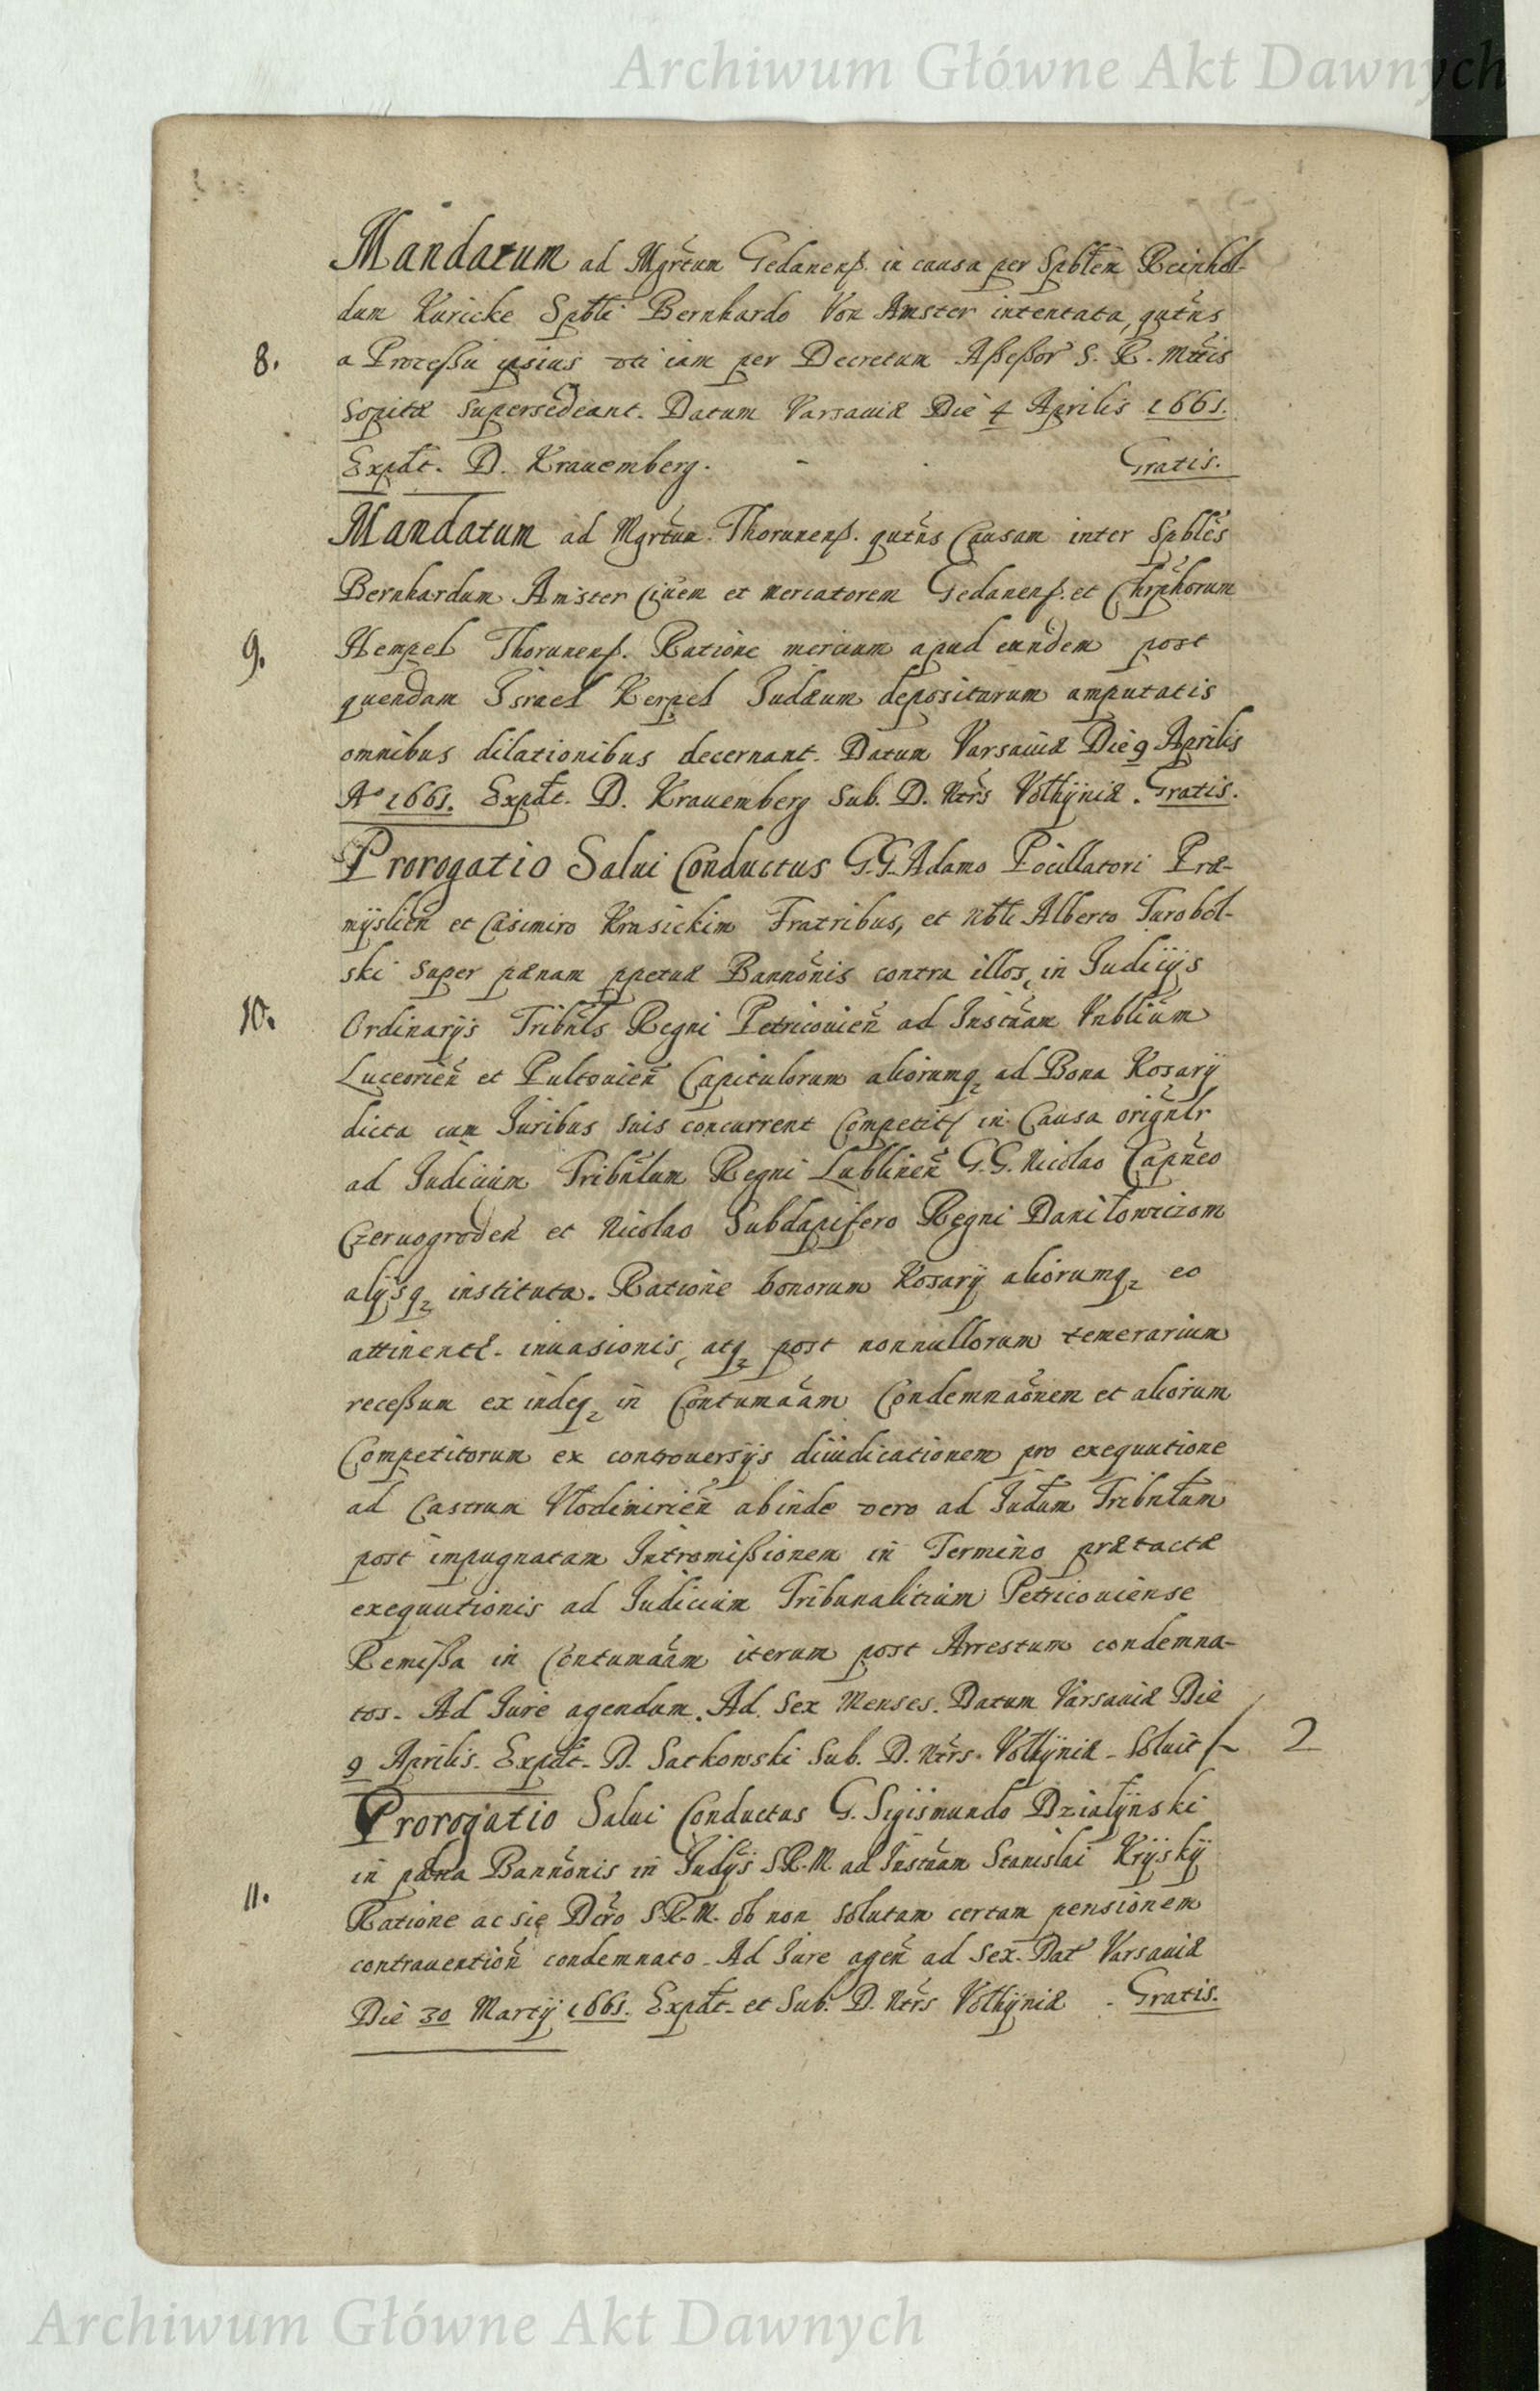 Archiwum Główne Akt Dawnych
Mandatum ad Mgrtum Gedanens. in causa per Spblem Reinhol-
dum Kuricke Spbli Bernhardo Von Amster intentata, qutns
8. a Processu ipsius uti iam per Decretum Assessor S. R. Mttis
sopitæ supersedeant. Datum Varsauiæ Die 4 Aprilis 1661.
Expdt. D. Krauemberg. - Gratis.
Mandatum ad Mgrtum Thorunens. qutns Causam inter Spbles
Bernhardum Amster Ciuem et mercatorem Gedanens. et Chrphorum
9. Hempel Thorunens. Ratione mercium apud eundem post
quendam Israel Kerpel Judæum depositarum amputatis
omnibus dilationibus decernant. Datum Varsauiæ Die 9 Aprilis
Ao 1661. Expdt. D. Krauemberg Sub. D. Ntrs Volhyniæ. Gratis.
Prorogatio Salui Conductus G.G. Adamo Pocillatori Præ-
mysliēn et Casimiro Krasickim Fratribus, et Nbli Alberto Turobol-
ski super pænam ppetuæ Bannonis contra illos, in Judicijs
10. Ordinarijs Tribnls Regni Petricouiēn ad Instnam Vnblium
Luceoriēn et Pultouiēn Capitulorum aliorumq3 ad Bona Kosary
dicta cum Juribus suis concurrent Competit in Causa orignlr
ad Judicium Tribnlum Regni Lublinēn G.G. Nicolao Capneo
Czeruogrodēn et Nicolao Subdapifero Regni Daniłowiczom
alijsq3 instituta. Ratione bonorum Kosary aliorumq3 eo
attinent. inuasionis, atq3 post nonnullorum temerarium
recessum ex indeq3 in Contumaām Condemnaōnem et aliorum
Competitorum ex controuersijs diiudicationem pro exequutione
ad Castrum Vlodimiriēn abinde vero ad Judum Tribnlum
post impugnatam Intromissionem in Termino prætactæ
exequutionis ad Judicium Tribunalitium Petricouiense
Remissa in Contumaām iterum post Arrestum condemna-
tos. Ad Jure agendum. Ad Sex Menses. Datum Varsauiæ Die
9 Aprilis. Expdt. D. Sackowski Sub. D. Ntrs. Volhyniæ. Soluit f 2
Prorogatio Salui Conductus G. Sigismundo Działynski
in pæna Bannonis in Judijs S.R.M. ad Instnam Stanislai Kryskij
11. Ratione ac sie Dcro S.R.M. ob non solutam certam pensionem
contrauentioñ condemnato. Ad Jure ageñ ad Sex. Dat Varsauiæ
Die 30 Martij 1661. Expdt. et Sub. D. Ntrs Volhyniæ. Gratis.
Archiwum Główne Akt Dawnych